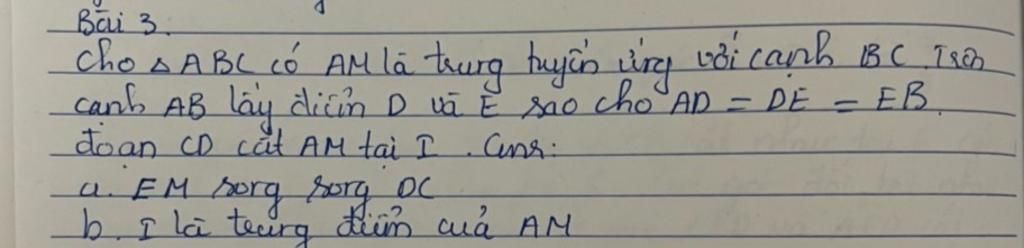 Bài 3.
Cho △ABC có AM là trung tuyến ứng với cạnh BC. Trên
cạnh AB lấy điểm D và E sao cho AD = DE = EB.
đoạn CD cắt AM tại I. Cmr:
a. EM song song DC
b. I là trung điểm của AM